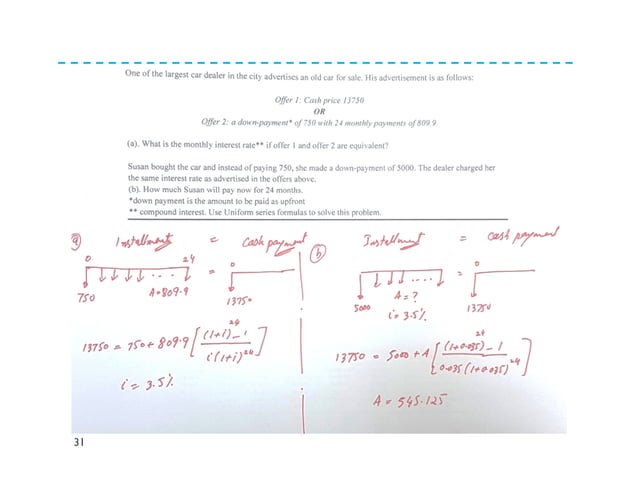 One of the largest car dealer in the city advertises an old car for sale. His advertisement is as follows:
Offer 1: Cash price 13750
OR
Offer 2: a down-payment* of 750 with 24 monthly payments of 809.9
(a). What is the monthly interest rate** if offer 1 and offer 2 are equivalent?
Susan bought the car and instead of paying 750, she made a down-payment of 5000. The dealer charged her
the same interest rate as advertised in the offers above.
(b). How much Susan will pay now for 24 months.
*down payment is the amount to be paid as upfront
** compound interest. Use Uniform series formulas to solve this problem.
a) Installment = Cash payment
0 24 = 0
750 A=809.9 13750
13750 = 750 + 809.9 [ (1+i)^24 - 1 / i(1+i)^24 ]
i = 3.5%
b) Installment = Cash payment
= 0
5000 A = ? 13750
i = 3.5%
13750 = 5000 + A [ (1+0.035)^24 - 1 / 0.035(1+0.035)^24 ]
A = 545.125
31